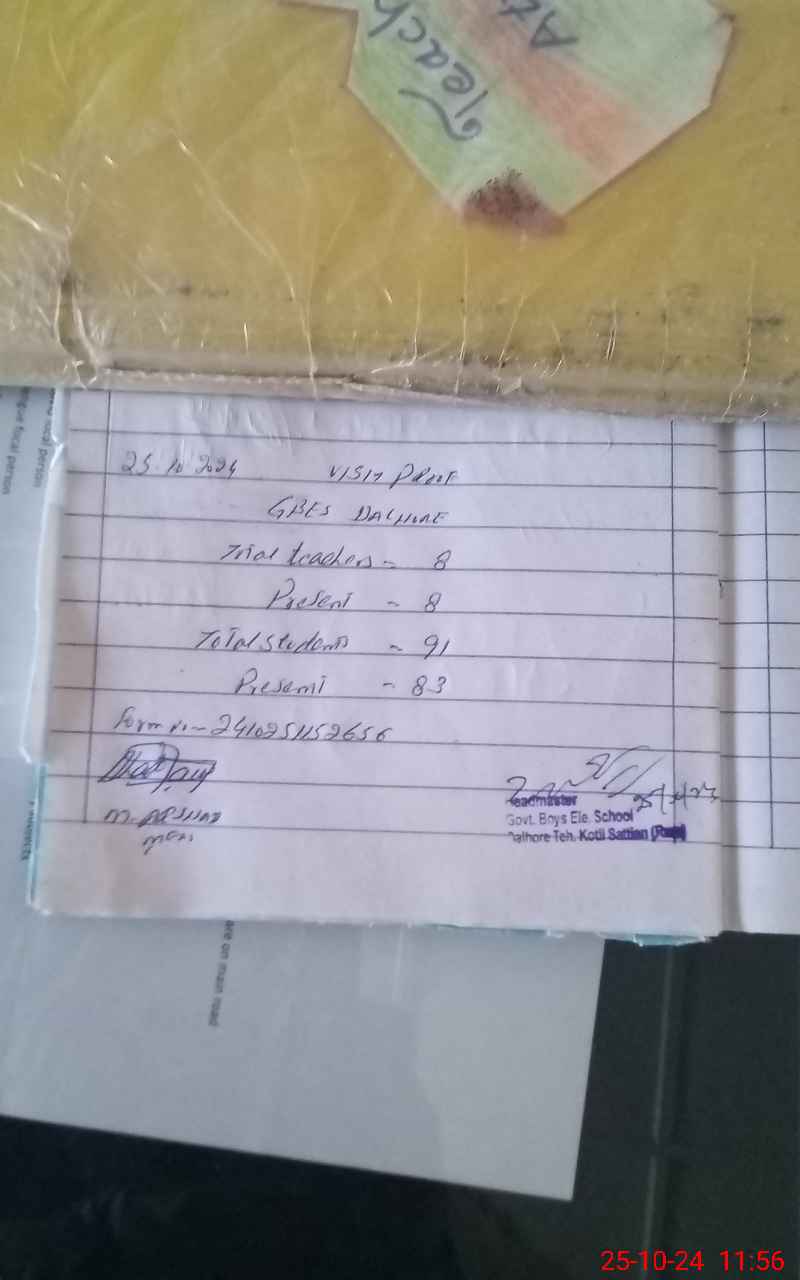 Teach
At
25.10.2024 VISIT PROOF
GBES DALHORE
Total teachers - 8
Present - 8
Total students - 91
Present - 83
Form no - 2410251152656
M. ARSHAD
Headmaster
Govt. Boys Ele. School
Dalhore Teh. Kotli Sattian
ocal person
focal person
are on main road
25-10-24 11:56